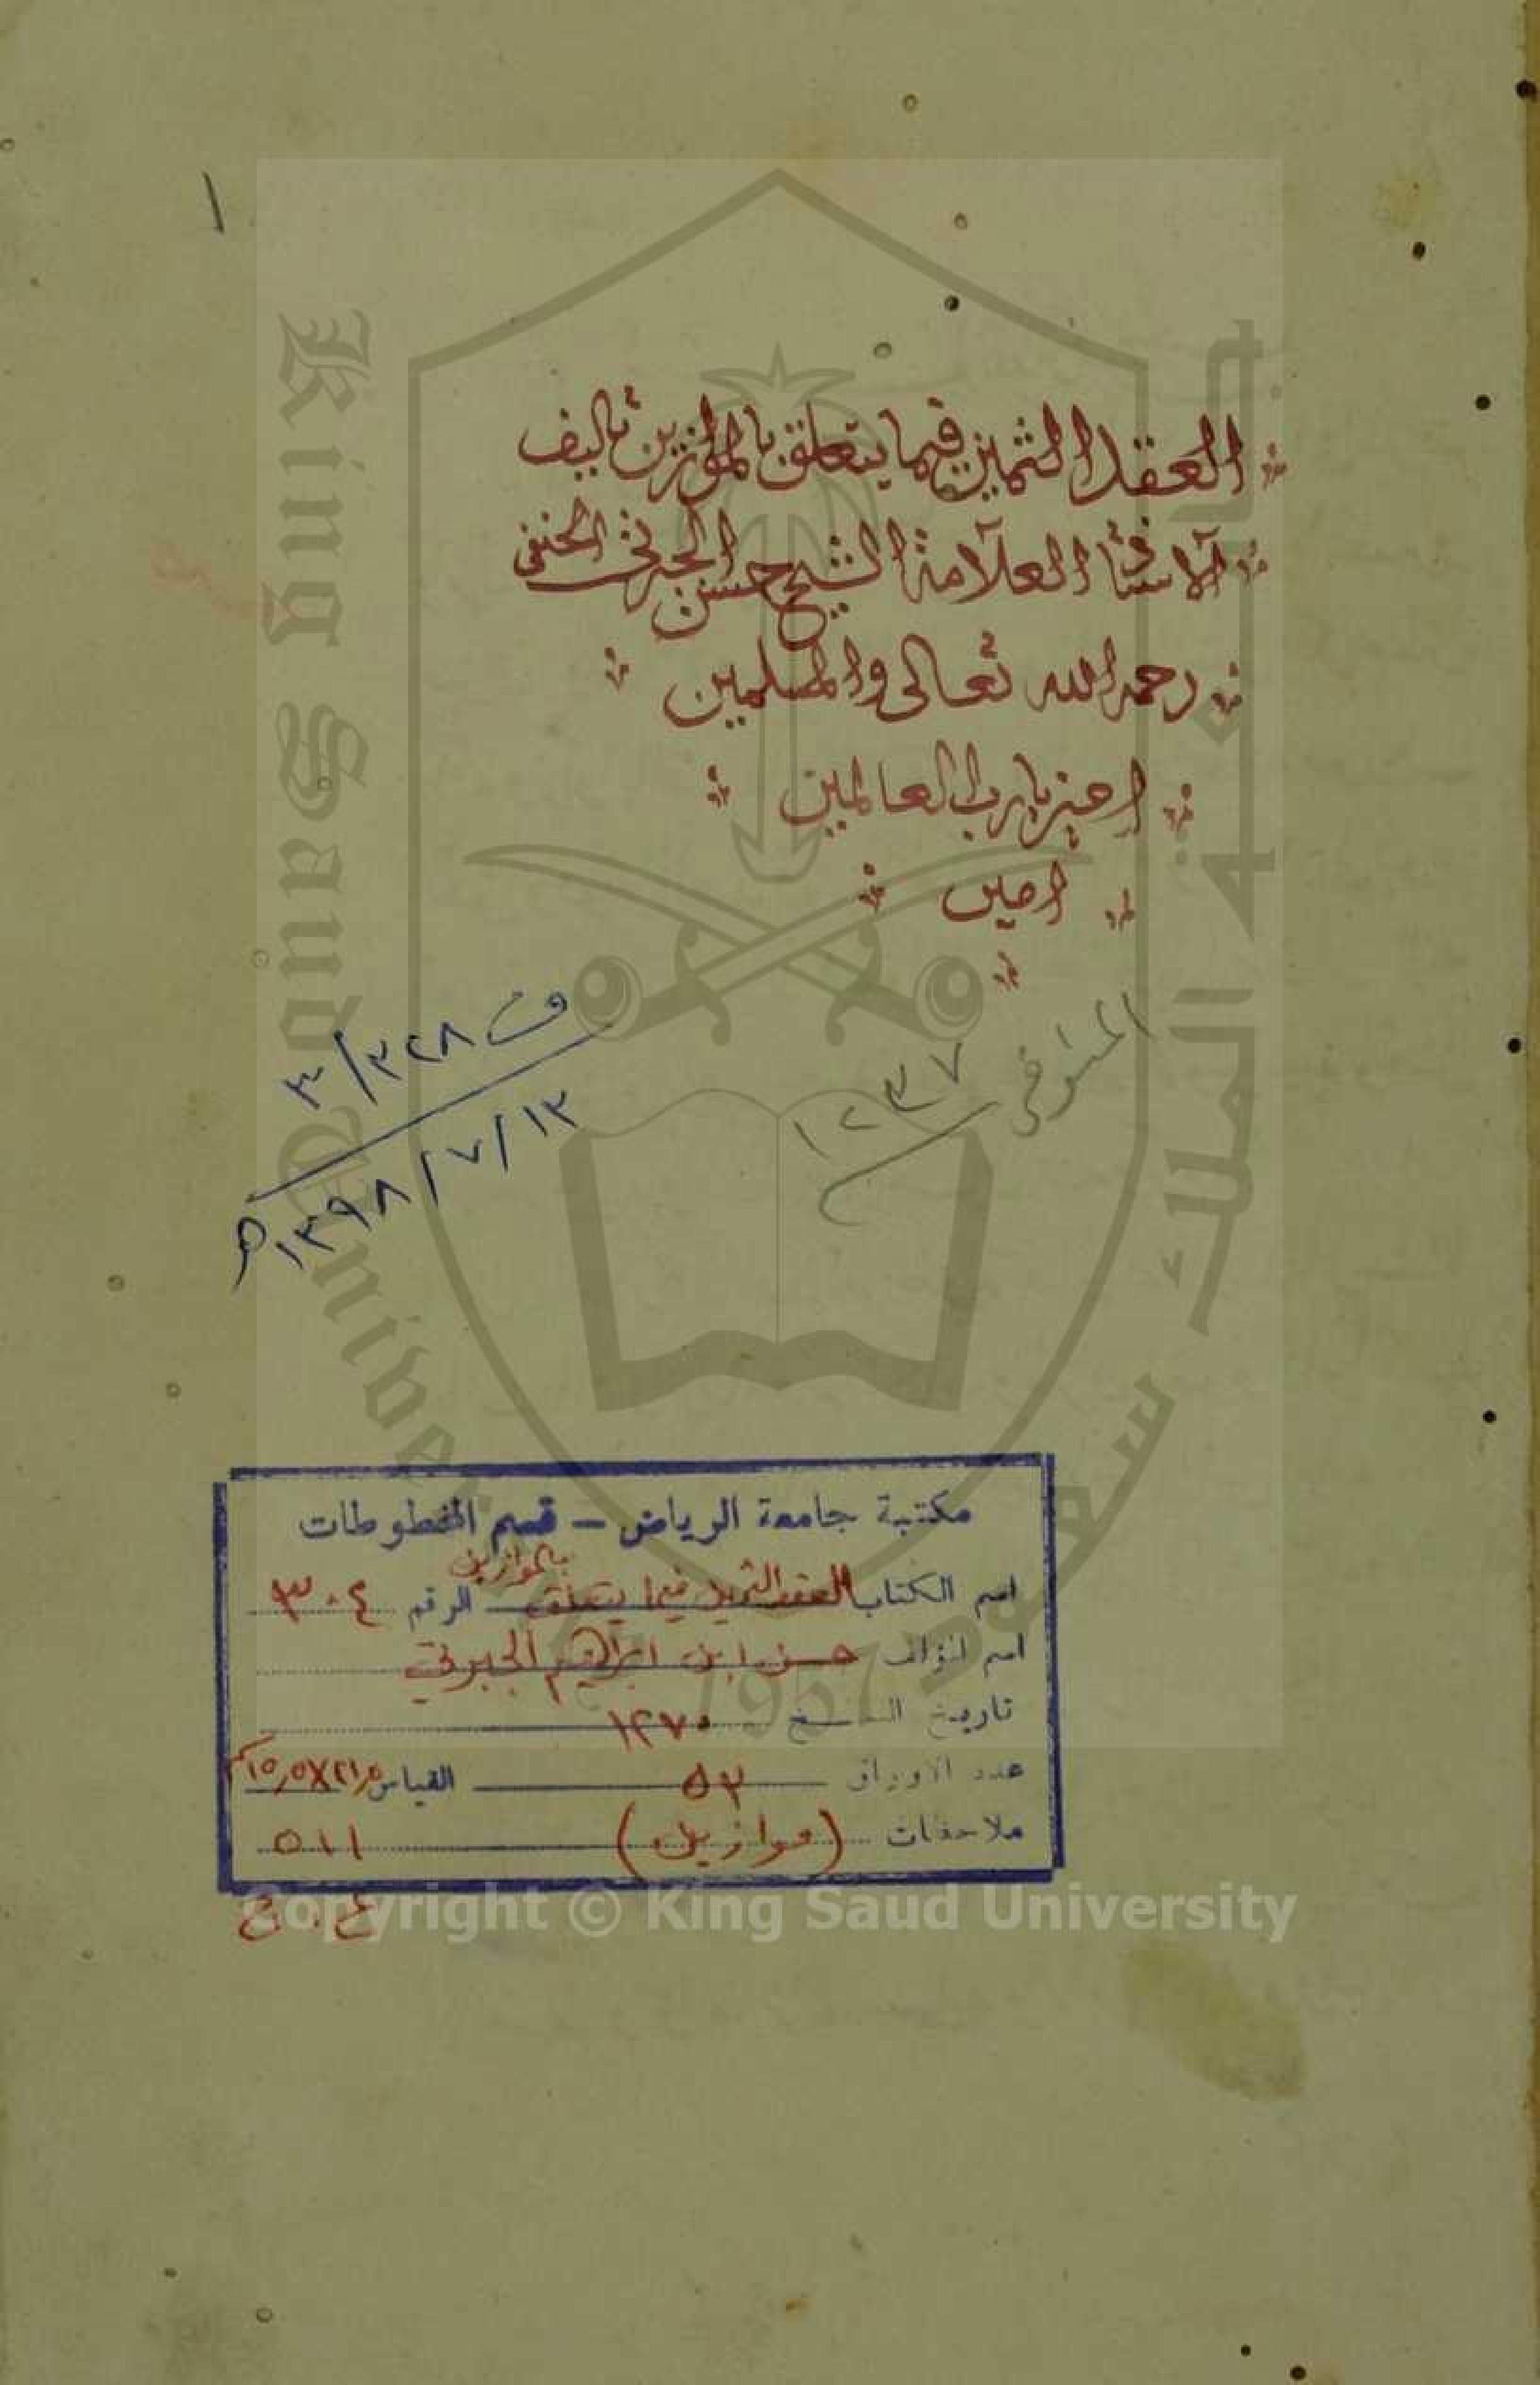 ١
العقد الثمين فيما يتعلق بالموازين تاليف
الاستاذ العلامة الشيخ حسن الجبرتي الحنفي
رحمه الله تعالى والمسلمين
امين يارب العالمين
امين
المتوفى ١٢٣٧
ف ٣/٣٢٨
١٣٩٨/٧/١٣ھ
مكتبة جامعة الرياض – قسم المخطوطات
اسم الكتاب العقد الثمين فيما يتعلق بالموازين الرقم ٣٠٠٤
اسم المؤلف حسن ابن ابراهيم الجبرتي
تاريخ النسخ ١٢٧٠
عدد الاوراق ٥٢ القياس ٢١٫٥X١٥٫٥ سم
ملاحظات (موازين) ٥١١
ع . ج
King Saud University
جامعة الملك سعود
1957
Copyright © King Saud University